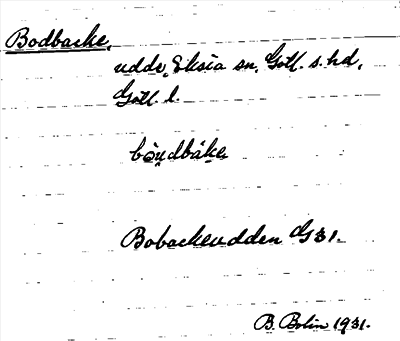 Bodbacke,
udde, Eksta sn, Gotl. s. hd,
Gotl. l.
bo͡u̯dbåke
Bobackeudden G31.
B. Bolin 1931.